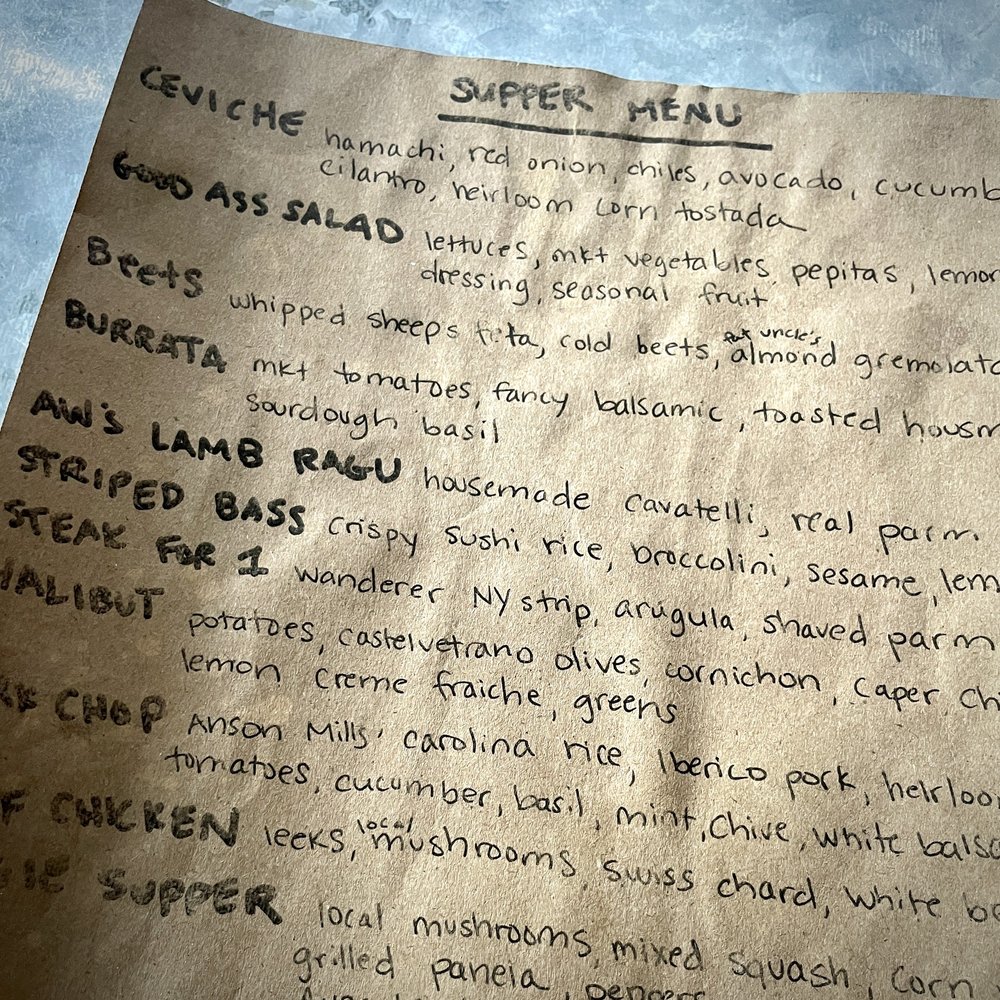 SUPPER MENU
CEVICHE hamachi, red onion, chiles, avocado, cucumb
cilantro, heirloom corn tostada
GOOD ASS SALAD lettuces, mkt vegetables, pepitas, lemon
dressing, seasonal fruit
Beets whipped sheeps feta, cold beets, fat uncle's almond gremolata
BURRATA mkt tomatoes, fancy balsamic, toasted housm
sourdough basil
AW'S LAMB RAGU housemade cavatelli, real parm
STRIPED BASS crispy sushi rice, broccolini, sesame, lem
STEAK FOR 1 wanderer NY strip, arugula, shaved parm
HALIBUT potatoes, castelvetrano olives, cornichon, caper, ch
lemon creme fraiche, greens
RK CHOP Anson Mills' carolina rice, Iberico pork, heirloo
tomatoes, cucumber, basil, mint, chive, white balsa
F CHICKEN leeks, local mushrooms, swiss chard, white
IE SUPPER local mushrooms, mixed squash, corn
grilled